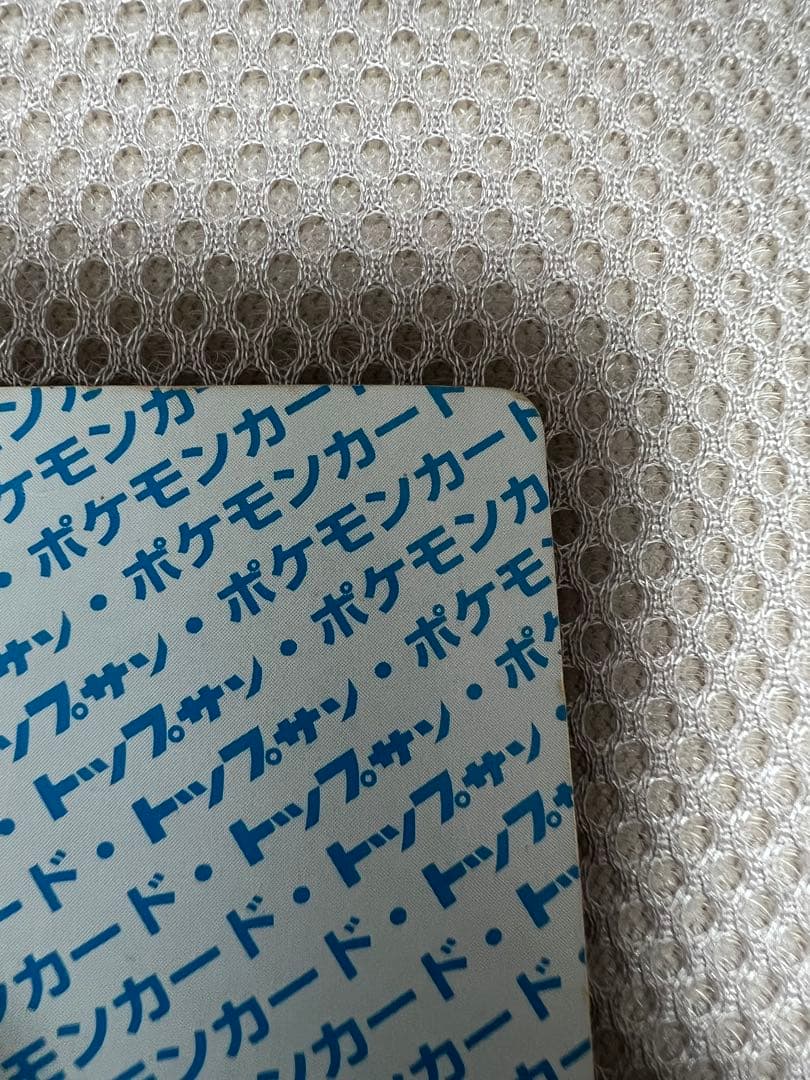 ンカ
ケモンカー
・ポケモンカード
サン・ポケモンカード
ップサン・ポケモンカード
・トップサン・ポケモンカ
ード・トップサン・ポケモ
ンカード・トップサン・ポケ
モンカード・トップサン・
モンカード・トップ
ンカード・トッ
カード・